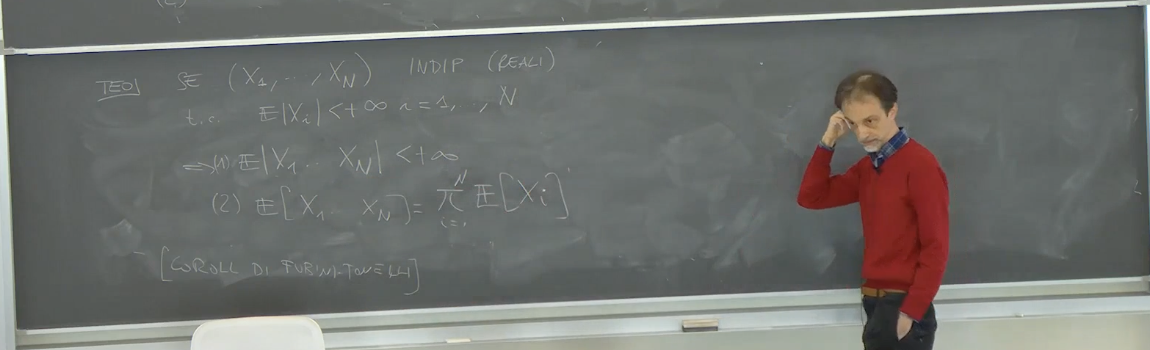 TEO] SE (X_1, .., X_N) INDIP (REALI)
t.c. 𝔼|X_i| < +∞ i=1, .., N
⇒ (1) 𝔼|X_1 .. X_N| < +∞
(2) 𝔼[X_1 .. X_N] = π_{i=1}^N 𝔼[X_i]
[COROLL DI FUBINI-TONELLI]